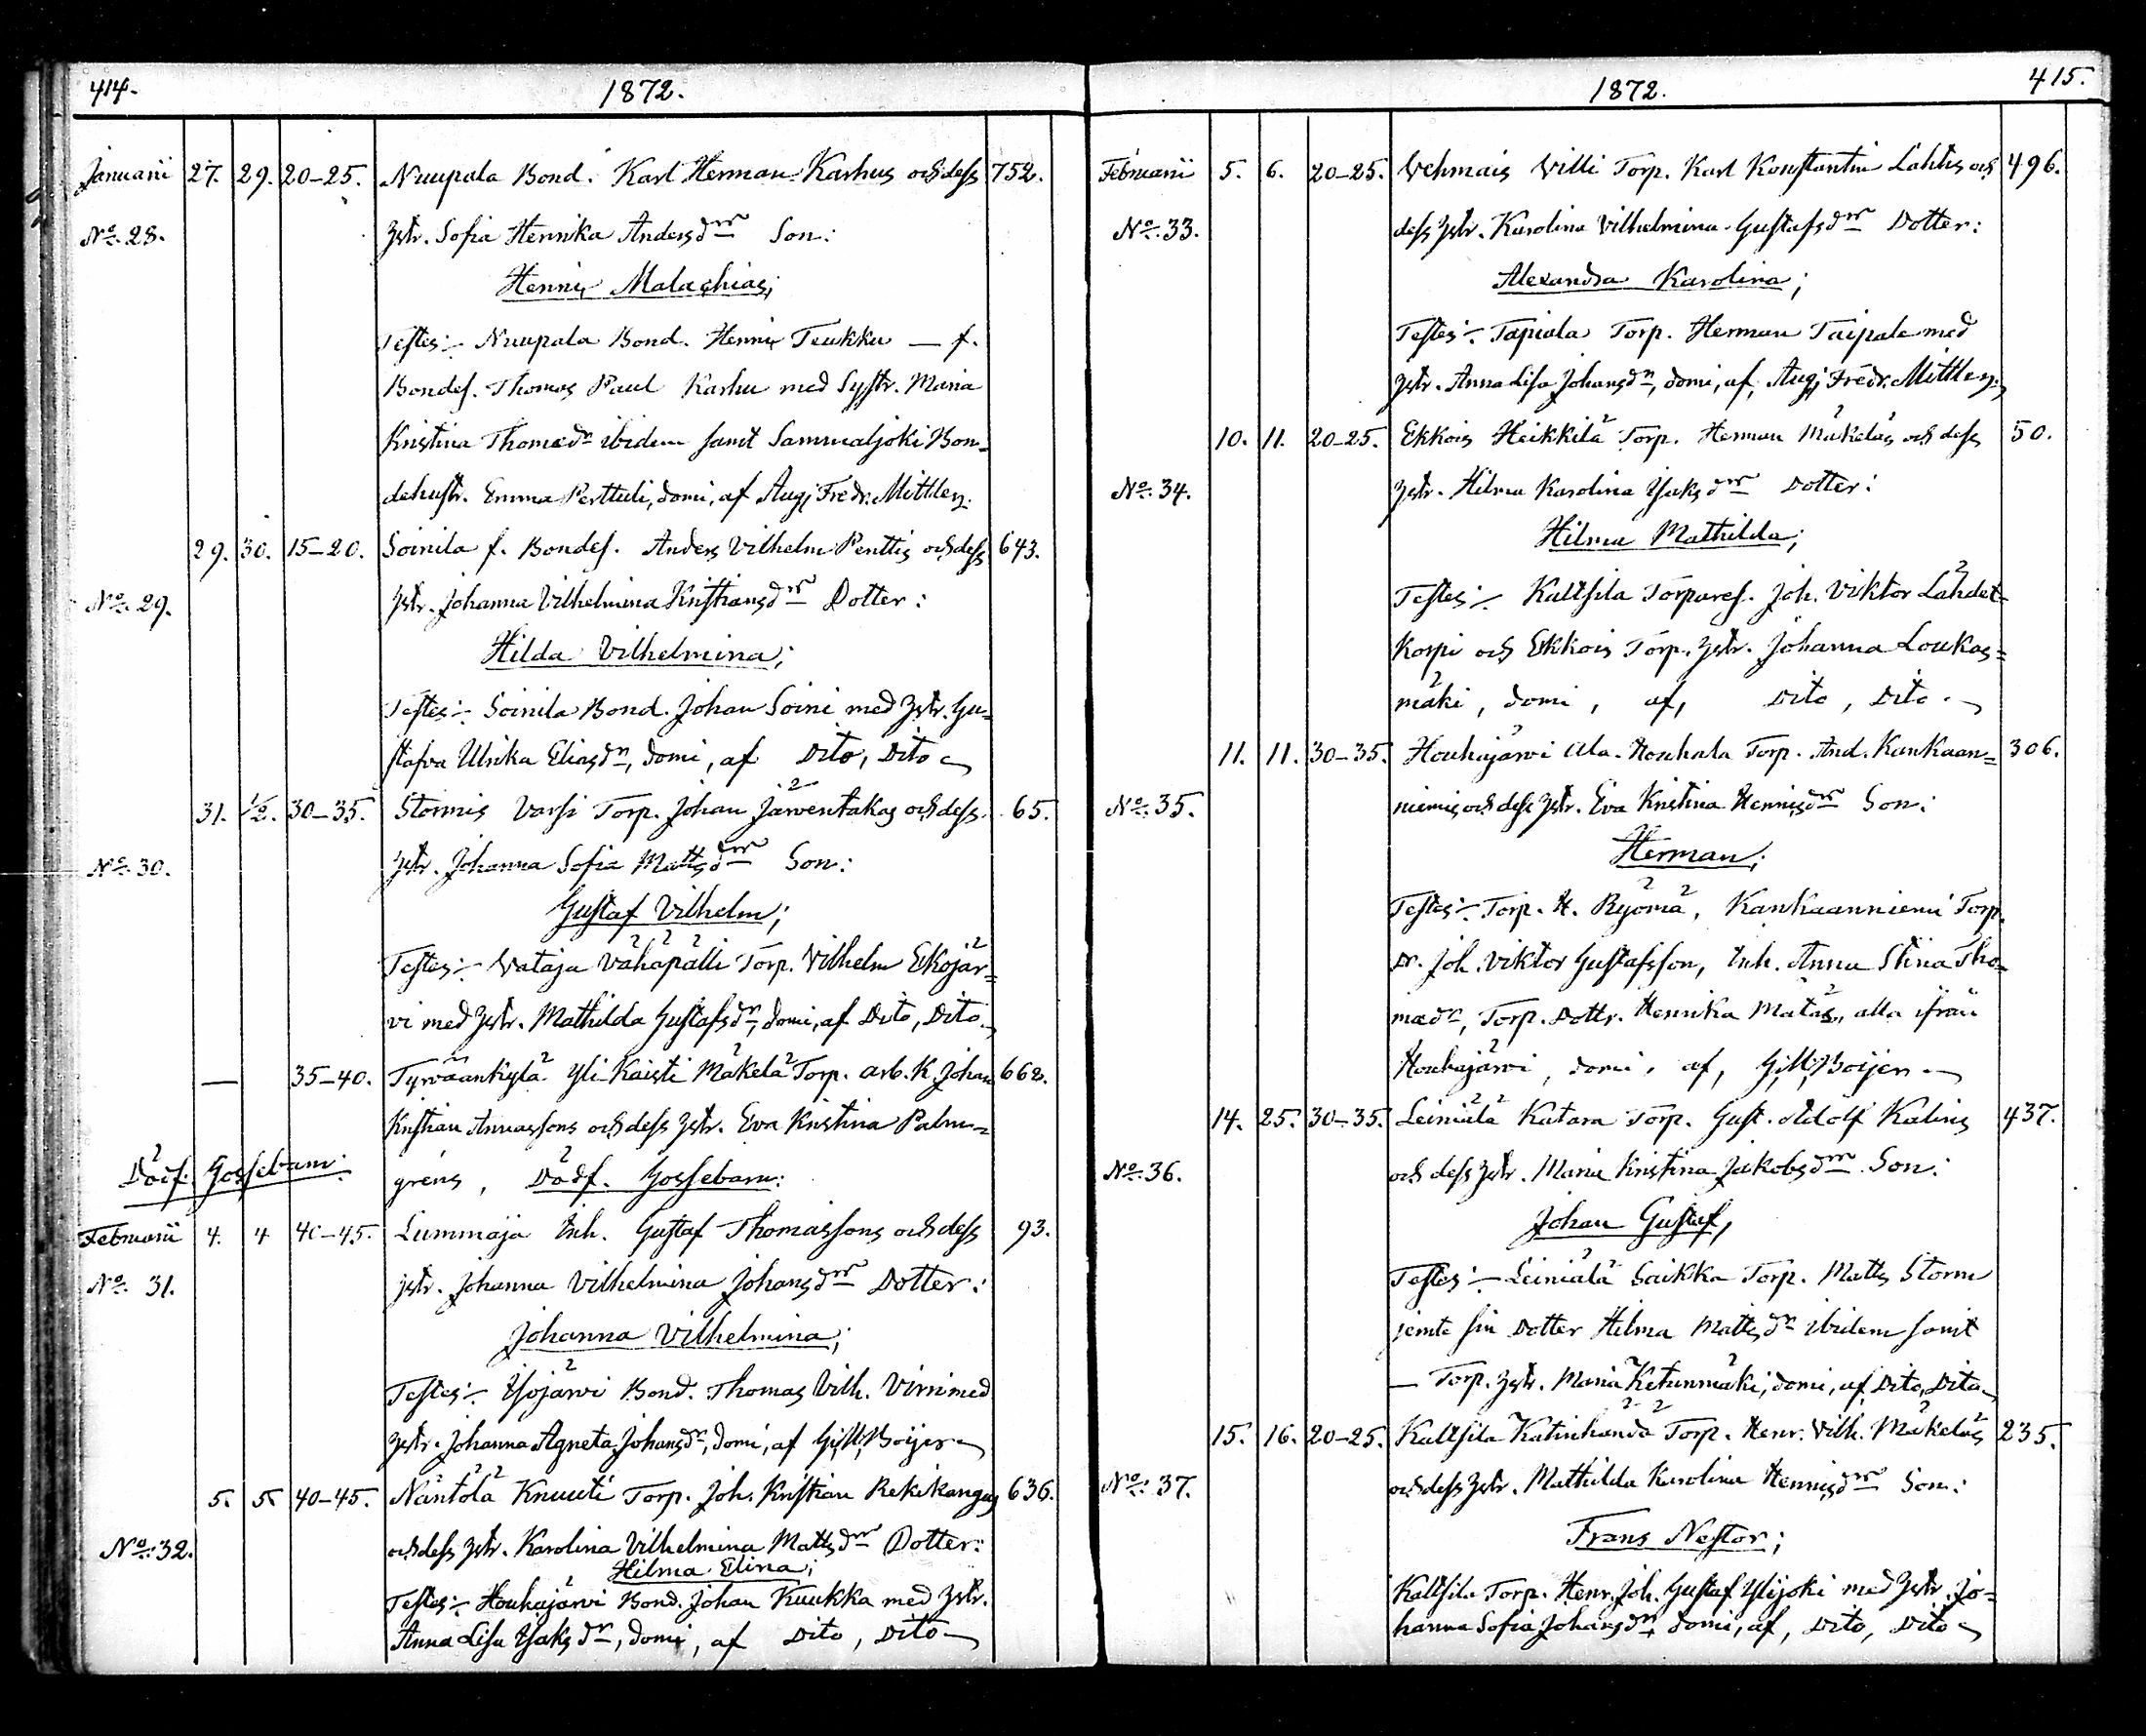 414. 1872.
Januarii 27. 29. 20-25. Nuupala Bond. Karl Herman Karhus och dess 752.
No. 28. Hstr. Sofia Henrika Andersdr Son:
Henrik Malachias;
Testes:- Nuupala Bond. Henrik Teukku — f.
Bondes. Thomas Paul Karhu med Systr. Maria
Kristina Thomædr ibidem samt Sammaljoki Bon=
dehustr. Emma Perttuli, domi, af Aug; Fredr. Mittler.
29. 30. 15-20. Soinila f. Bondes. Anders Vilhelm Penttis och dess 643.
No. 29. Hstr. Johanna Vilhelmina Kristiansdr Dotter:
Hilda Vilhelmina;
Testes:- Soinila Bond. Johan Soini med Hstr. Gu=
stafva Ulrika Eliasdr, domi, af Dito, Dito
31. 1/2. 30-35. Stormis Varsi Torp. Johan Järventakas och dess 65.
No. 30. Hstr. Johanna Sofia Mattsdr Son:
Gustaf Vilhelm;
Testes:- Vataja Vähäpälli Torp. Vilhelm Ekojär=
vi med Hstr. Mathilda Gustafsdr, domi, af Dito, Dito.
— 35-40. Tyrväänkylä Yli Kaisti Mäkelä Torp. arb. K. Johan 662.
Kristian Annassons och dess Hstr. Eva Kristina Palm=
Dödf. Gossebarn: grens, Dödf. Gossebarn:
Februarii 4. 4 40-45. Lummaja Inh. Gustaf Thomassons och dess 93.
No. 31. Hstr. Johanna Vilhelmina Johansdr Dotter:
Johanna Vilhelmina;
Testes:- Ysojärvi Bond. Thomas Vilh. Virri med
Hstr. Johanna Agneta Johansdr, domi, af G; M; Boijer
5. 5 40-45. Näntölä Knuuti Torp. Joh. Kristian Rekikangas 636.
No. 32. och dess Hstr. Karolina Vilhelmina Mattsdr Dotter:
Hilma Elina;
Testes:- Houhajärvi Bond. Johan Kuukka med Hstr.
Anna Lisa Ysaksdr, domi, af Dito, Dito
1872. 415.
Februarii 5. 6. 20-25. Vehmais Villi Torp. Karl Konstantin Lahtis och 496.
No. 33. dess Hstr. Karolina Vilhelmina Gustafsdr Dotter:
Alexandra Karolina;
Testes:- Tapiola Torp. Herman Taipale med
Hstr. Anna Lisa Johansdr, domi, af, Aug; Fredr. Mittler.
10. 11. 20-25. Ekkois Heikkilä Torp. Herman Mäkeläs och dess 50.
No. 34. Hstr. Hilma Karolina Ysaksdr Dotter:
Hilma Mathilda;
Testes:- Kaltsila Torpares. Joh. Viktor Lähdet=
Korpi och Ekkois Torp. Hstr. Johanna Loukas=
mäki, domi, af, Dito, Dito.
11. 11. 30-35. Houhajärvi Ala-Houhala Torp. And. Kankaan= 306.
No. 35. niemis och dess Hstr. Eva Kristina Henriksdr Son:
Herman;
Testes:- Torp. H. Ryömä, Kankaanniemi Torp.
Dr. Joh. Viktor Gustafsson, Inh. Anna Stina Tho=
mædr, Torp. Dottr. Henrika Matäs, alla ifrån
Houhajärvi, domi, af, G; M; Boijer
14. 25. 30-35. Leiniälä Katara Torp. Gust. Adolf Kalins 437.
No. 36. och dess Hstr. Maria Kristina Jakobsdr Son:
Johan Gustaf,
Testes:- Leiniälä Saikka Torp. Matts Storm
jemte sin Dotter Hilma Mattsdr ibidem samt
— Torp. Hstr. Maria Ketunmäki, domi, af Dito, Dito
15. 16. 20-25. Kaltsila Katinhändä Torp. Henr. Vilh. Mäkeläs 235.
No. 37. och dess Hstr. Mathilda Karolina Henriksdr Son:
Frans Nestor;
Kaltsila Torp. Henr. Joh. Gustaf Ylijoki med Hstr. Jo=
hanna Sofia Johansdr, domi, af, Dito, Dito